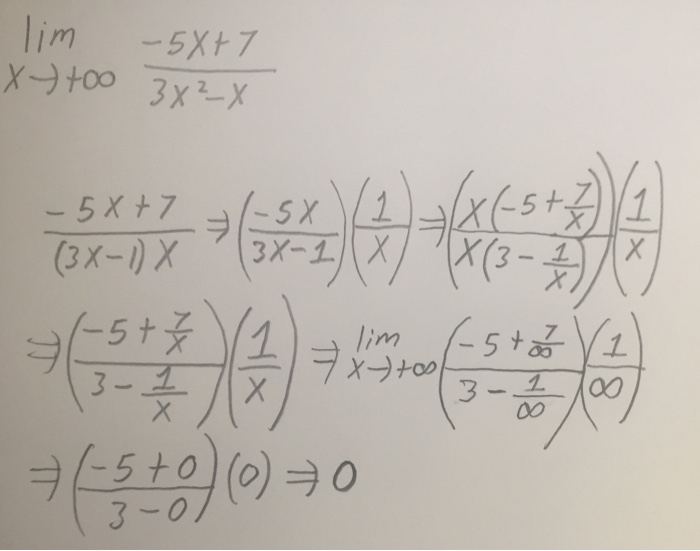 lim x→+∞ (-5x+7)/(3x²-x)
(-5x+7)/((3x-1)x) ⇒ (-5x/(3x-1))(1/x) ⇒ (x(-5+7/x)/x(3-1/x))(1/x)
⇒ ((-5+7/x)/(3-1/x))(1/x) ⇒ lim x→+∞ ((-5+7/∞)/(3-1/∞))(1/∞)
⇒ ((-5+0)/(3-0))(0) ⇒ 0